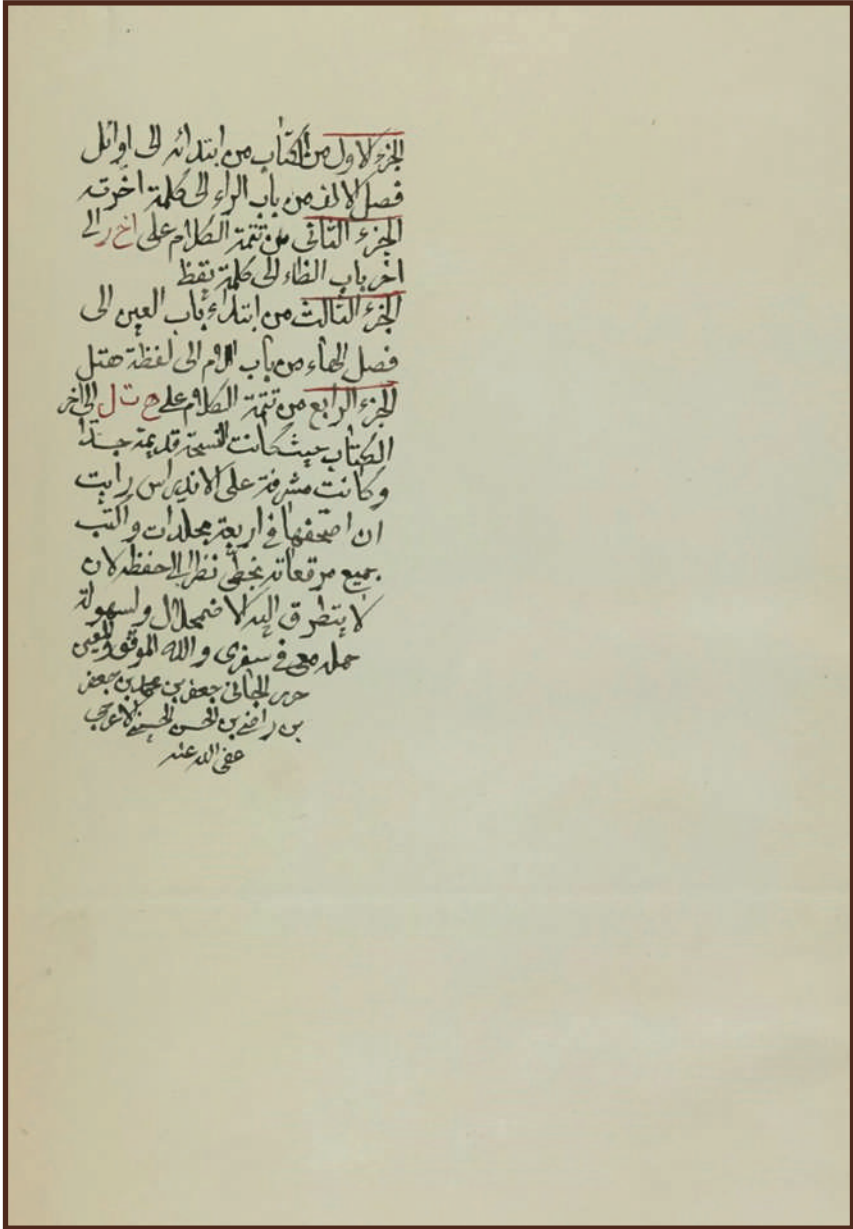 الجزء الاول من الكتاب من ابتدائه الى اوائل
فصل الالف من باب الراء الى كلمة اخرته
الجزء الثاني من تتمة الكلام على اخ ر الى
اخر باب الظاء الى كلمة يقظ
الجزء الثالث من ابتداء باب العين الى
فصل الهاء من باب اللام الى لفظة هتل
الجزء الرابع من تتمة الكلام على ه ت ل الى اخر
الكتاب حيث كانت النسخة قديمة جدا
وكانت مشرفة على الاندراس رايت
ان اصحفها في اربعة مجلدات واكتب
جميع مرقعاته بخطي نظرا الى حفظه لان
لا يتطرق اليه الاضمحلال ولسهولة
حمله معي في سفرى والله الموفق والمعين
حرره الجاني جعفر بن محمد بن جعفر
بن راضي بن الحسن الحسيني الاعرجي
عفى الله عنه